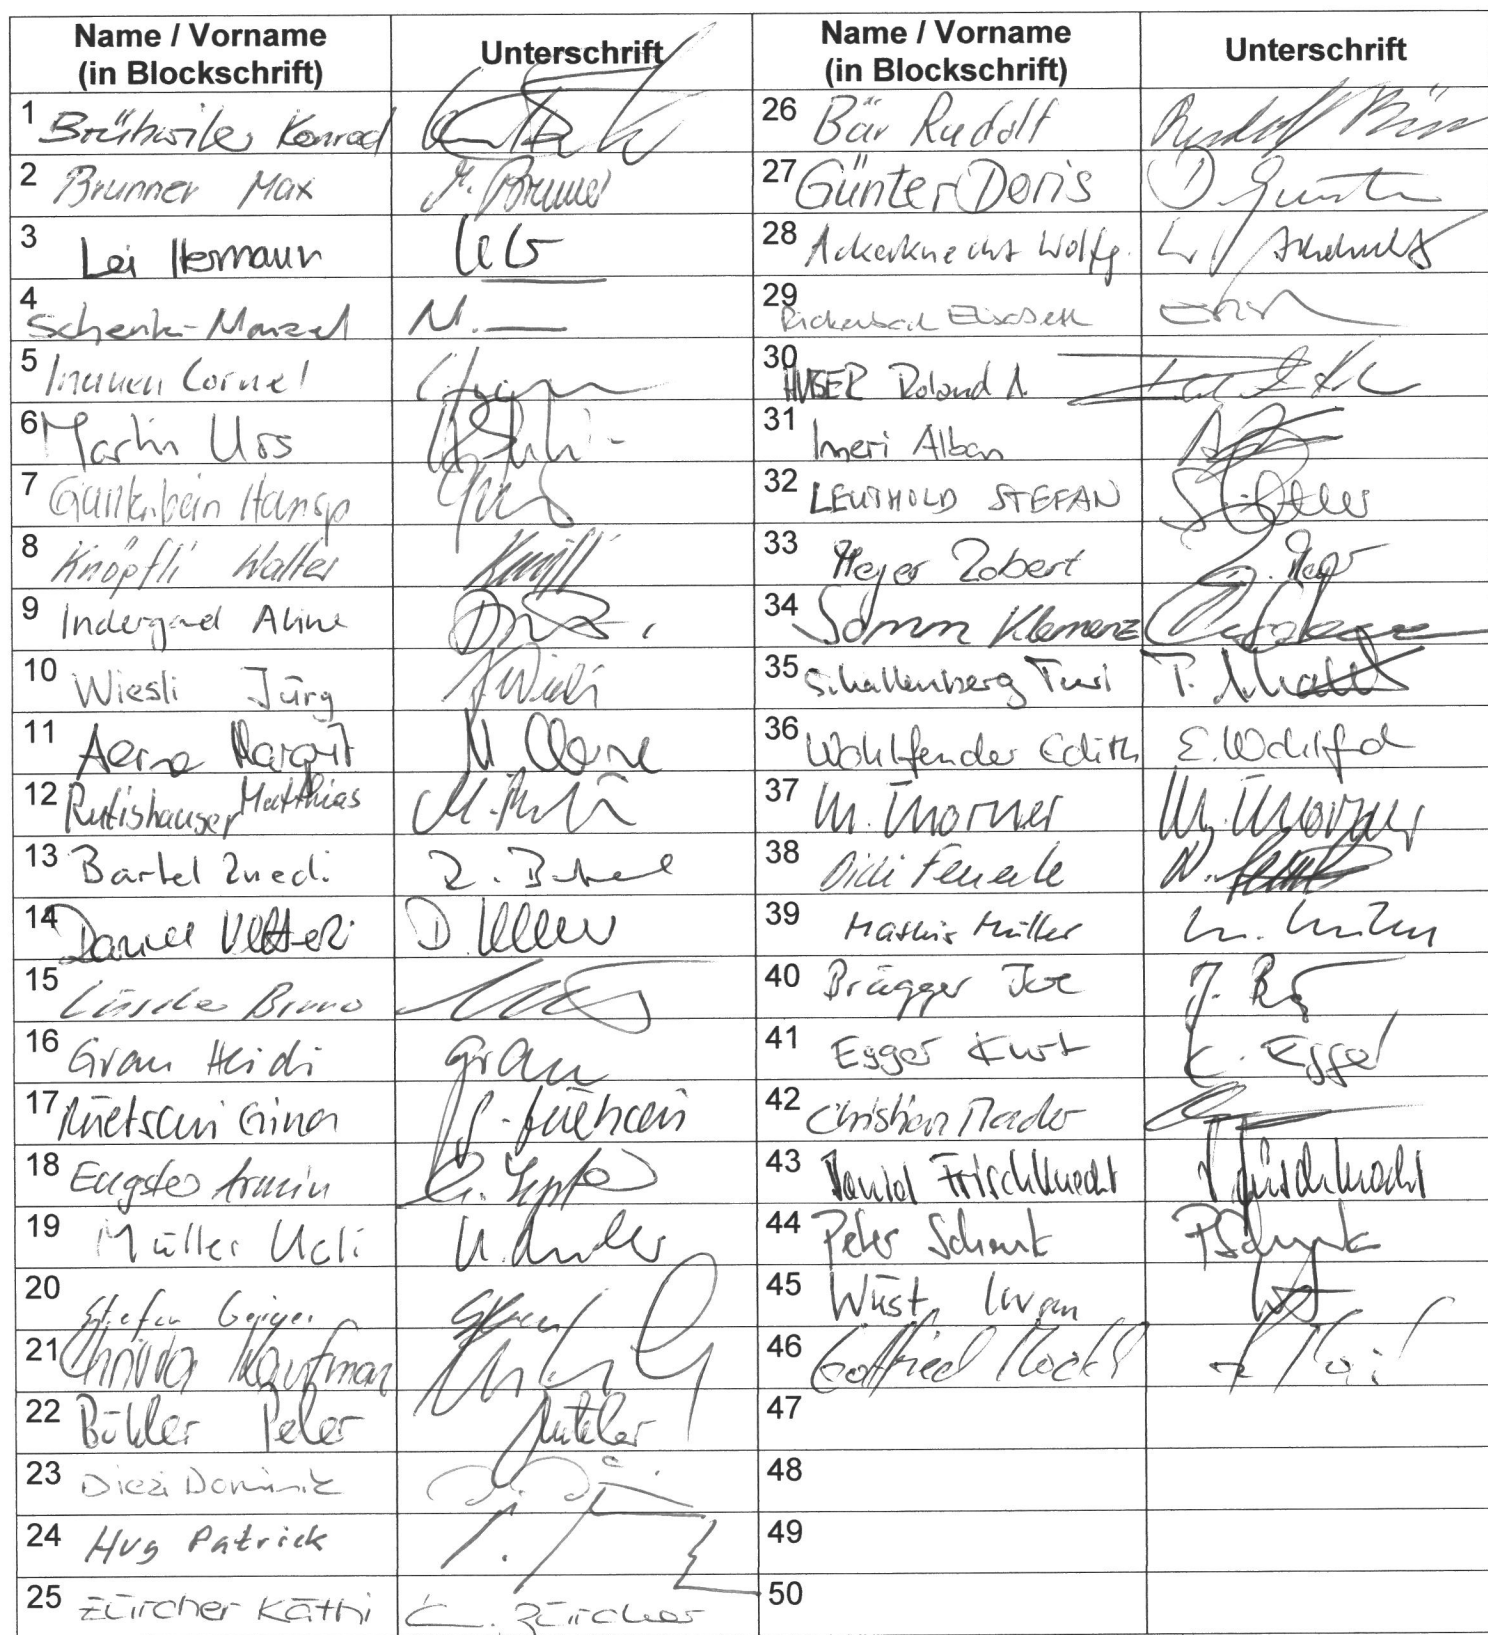 Name / Vorname
(in Blockschrift)
Unterschrift
Name / Vorname
(in Blockschrift)
Unterschrift
1 Brühwiler Konrad
2 Brunner Max M. Brunner
3 Lei Hermann
4 Schenk Marcel M.
5 Inauen Cornel
6 Martin Urs
7 Gantenbein Hansp
8 Knöpfli Walter
9 Indergand Aline
10 Wiesli Jürg J Wiesli
11 Aerne Margrit M Aerne
12 Rutishauser Matthias
13 Bartel Ruedi R. Bartel
14 Daniel Vetterli
15 Lüscher Bruno
16 Grau Heidi Grau
17 Rüetschi Gina
18 Eugster Armin
19 Müller Ueli U. Müller
20 Stefan Geiges
21 Christa Kaufmann
22 Bühler Peter Bühler
23 Diezi Dominik
24 Hug Patrick
25 Zürcher Käthi K. Zürcher
26 Bär Rudolf Rudolf Bär
27 Günter Doris D. Günter
28 Ackerknecht Wolfg. W Ackerknecht
29 Rickenbach Elisabeth
30 HUSER Roland A.
31 Imeri Alban
32 LEUTHOLD STEFAN
33 Meyer Robert R. Meyer
34 Somm Klemenz
35 Schallenberg Turi T. Schall
36 Wohlfender Edith E. Wohlf
37 M. Thorner M. Thorner
38 Didi Feuerle D.
39 Mathis Müller M. Müller
40 Brägger Joe J. B
41 Egger Kurt K. Egger
42 Christian Mader
43 Daniel Frischknecht D Frischknecht
44 Peter Schenk P Schenk
45 Wüst Iwan
46 Gottfried Möckli
47
48
49
50